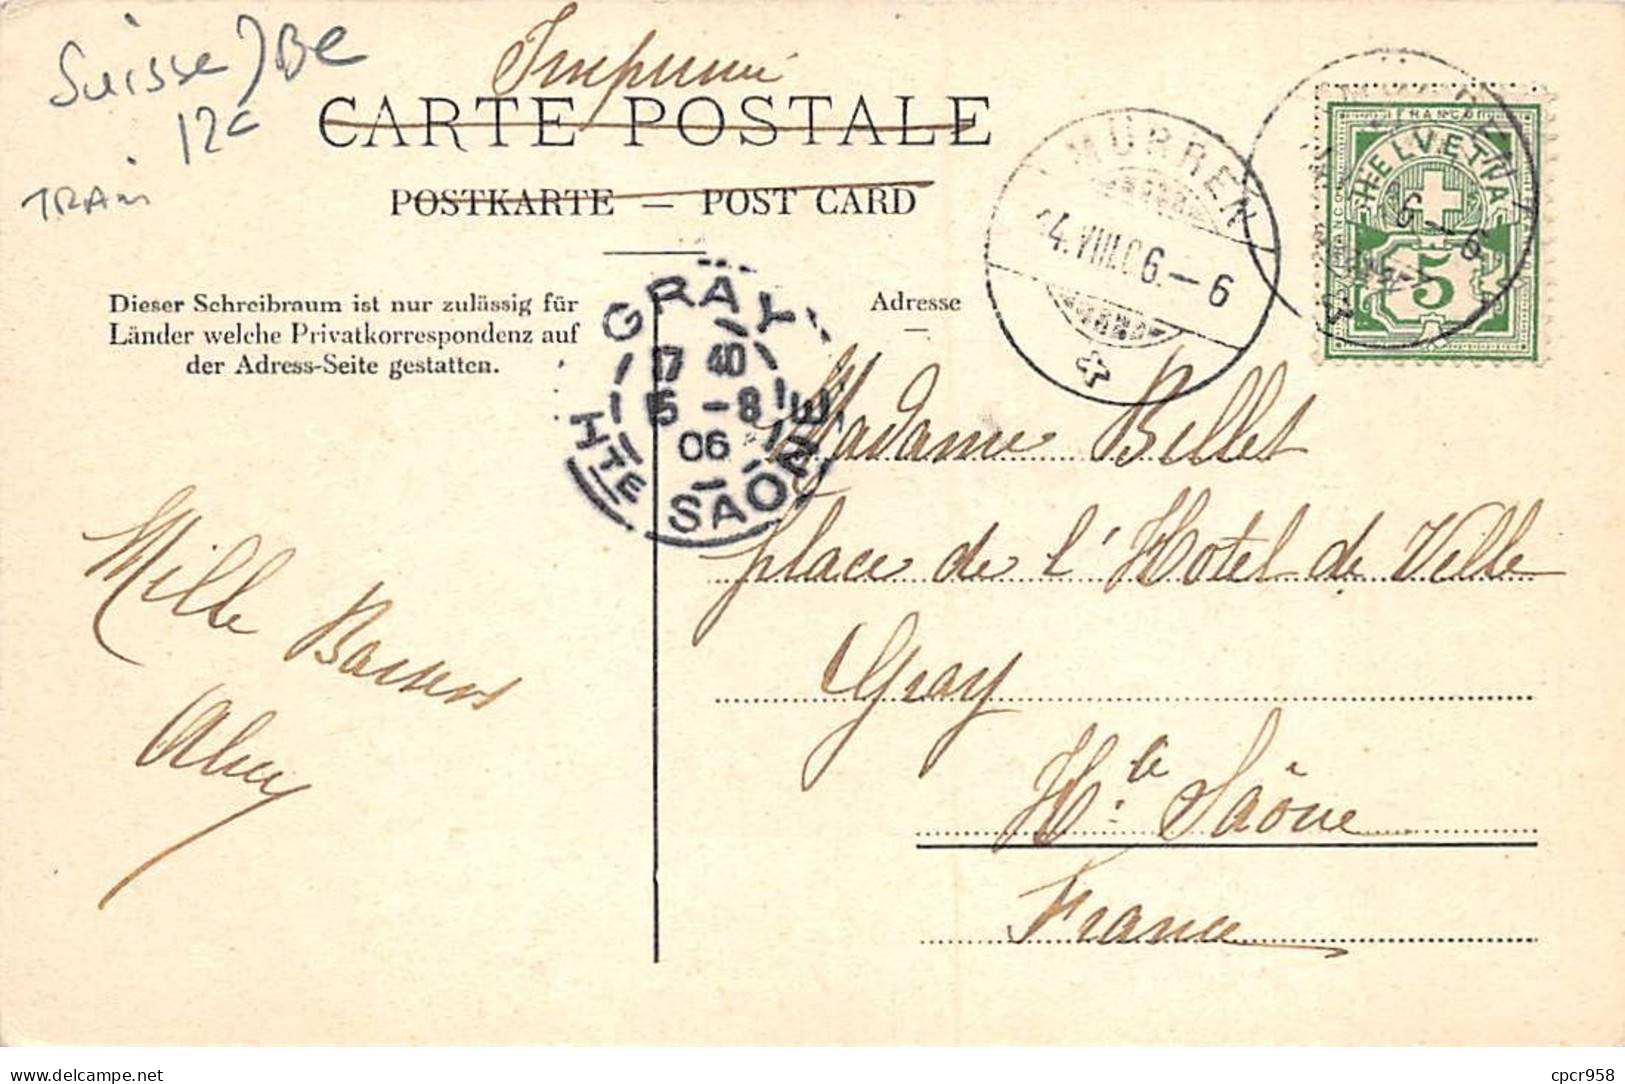 Suisse) Be
12c
TRAin
Imprimé
CARTE POSTALE
POSTKARTE — POST CARD
Dieser Schreibraum ist nur zulässig für
Länder welche Privatkorrespondenz auf
der Adress-Seite gestatten.
Adresse
GRAY
17 40
15 -8
06
HTE SAÔNE
MÜRREN
4.VIII.06.–6
FRANCO
HELVETIA
5
Madame Billet
place de l'Hotel de Ville
Gray
Hte Saône
France
Mille Baisers
delcampe.net
cpcr958